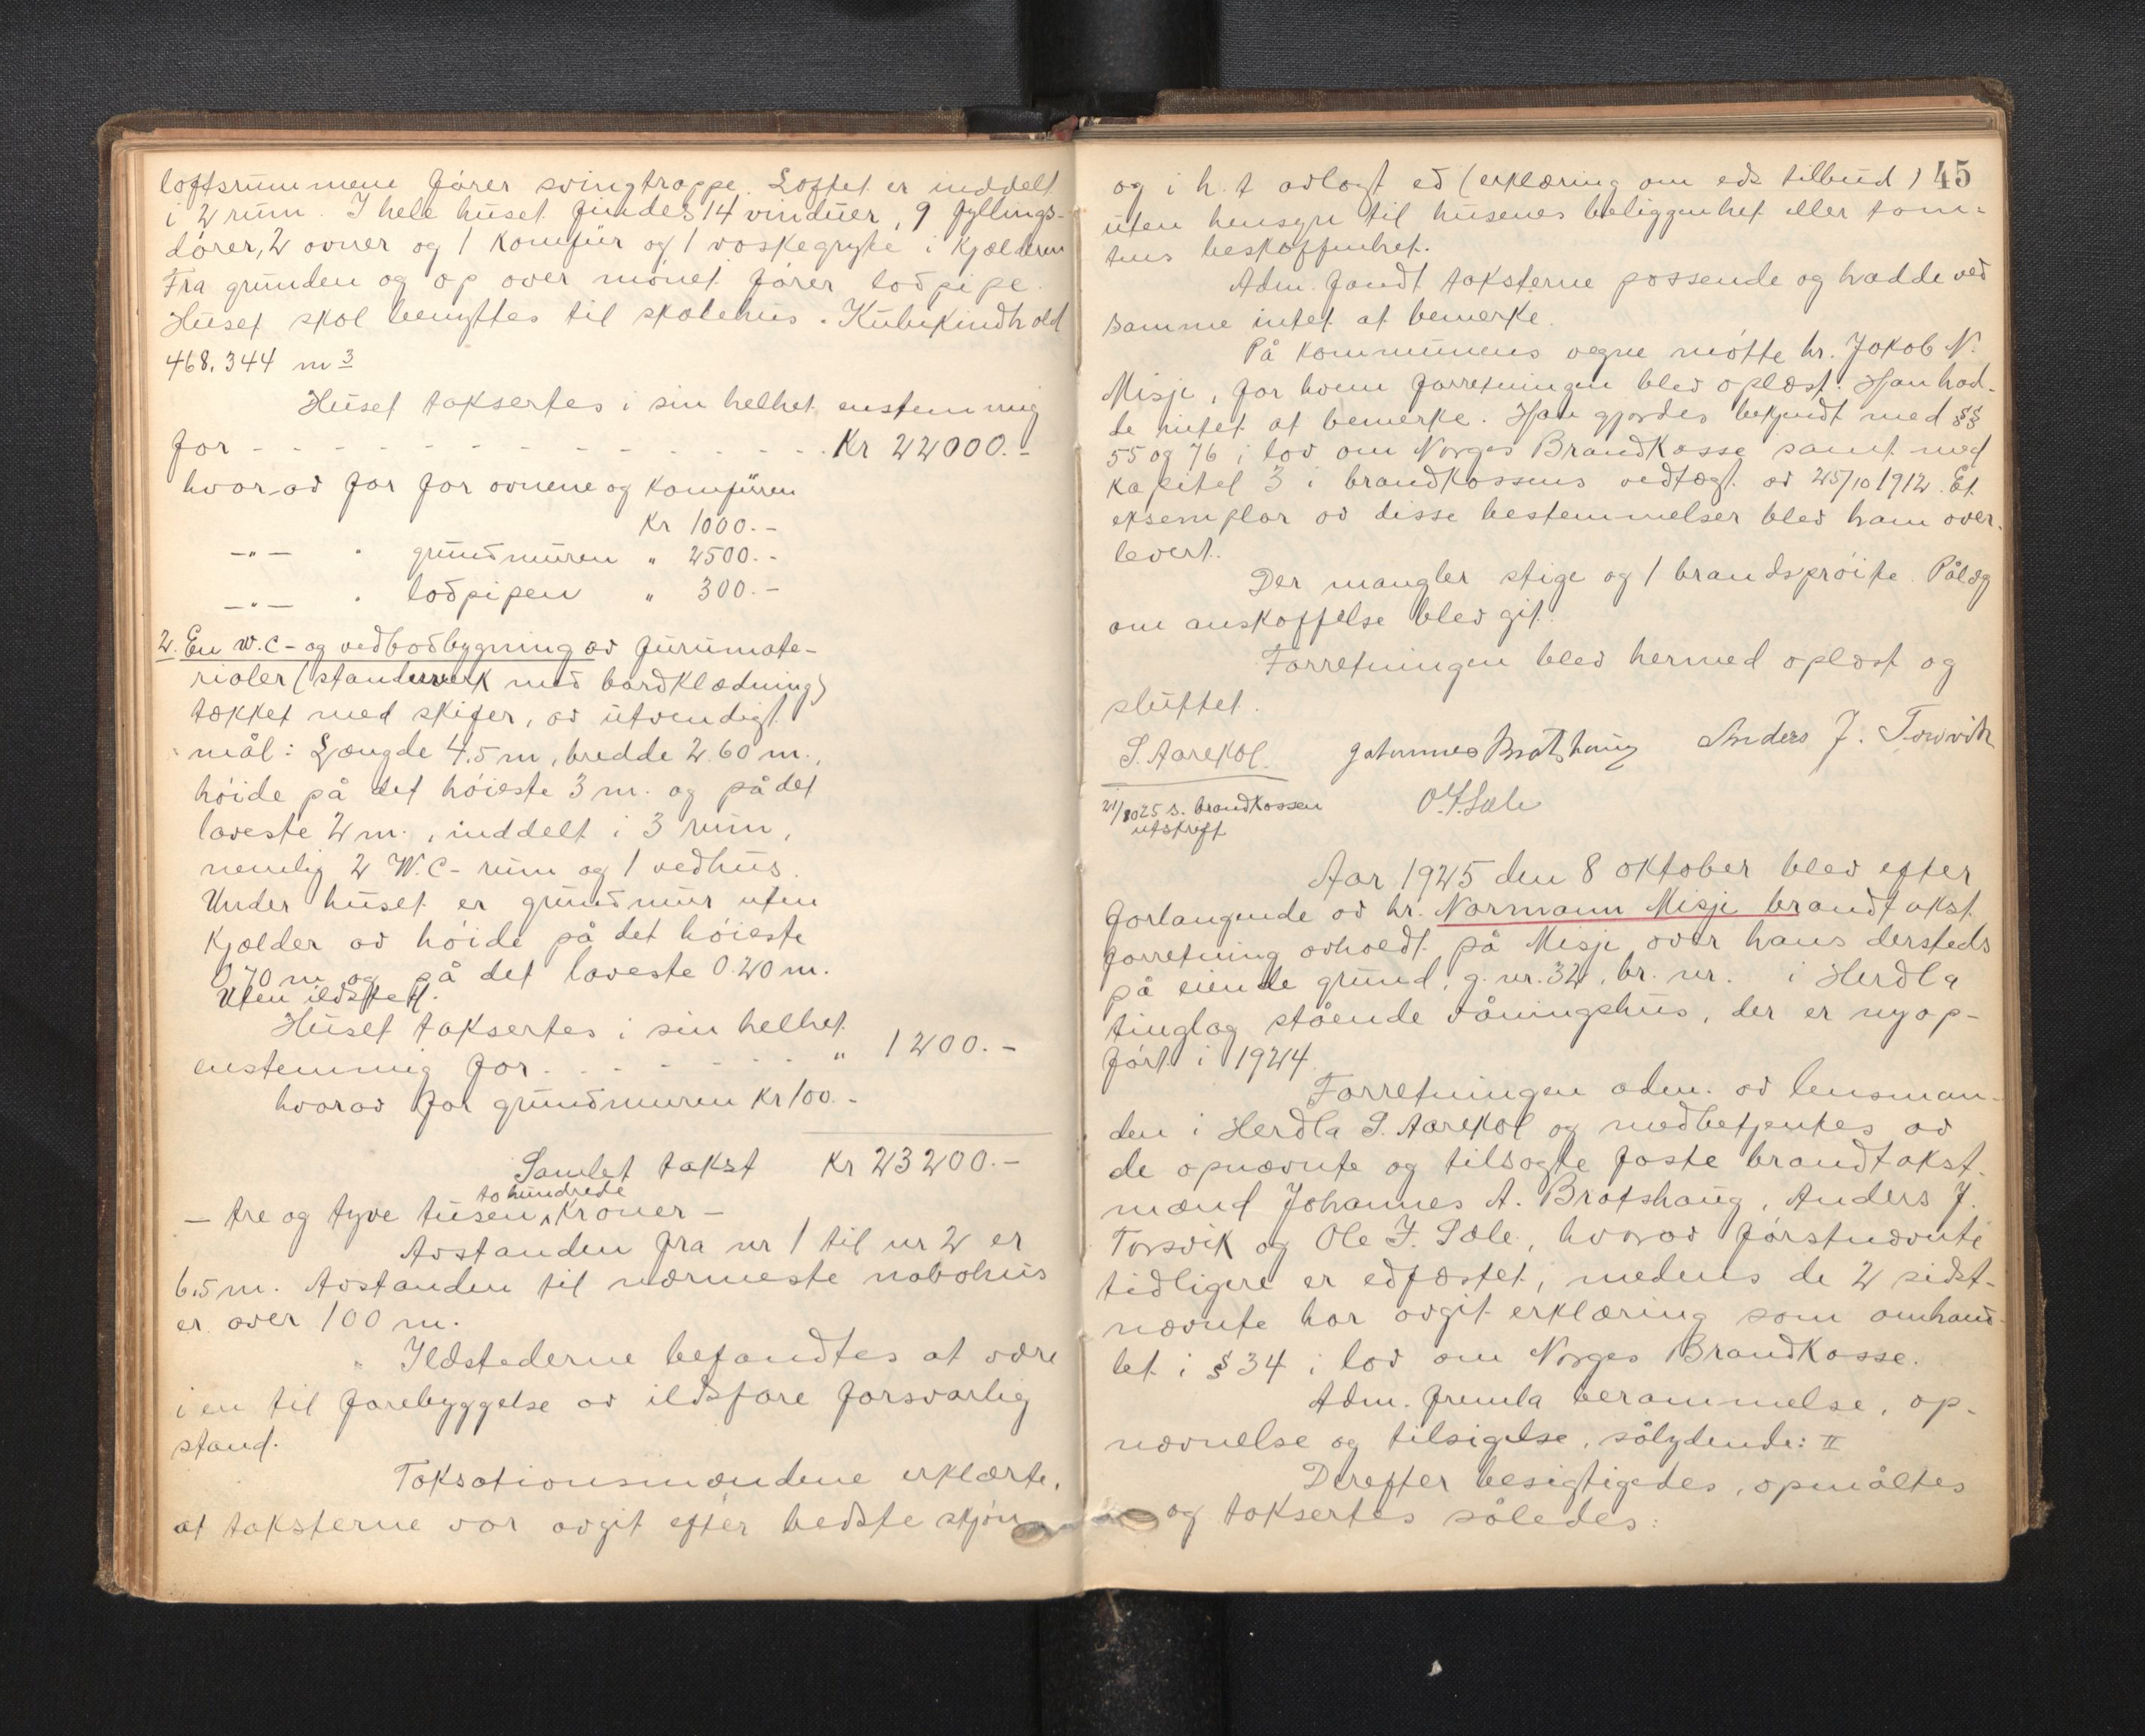 loftsrummene fører svingtrappe. Loftet er inddelt
i 2 rum. I hele huset findes 14 vinduer, 9 fyllings-
dører, 2 ovner og 1 komfür og 1 vaskegryte i kjælderen
Fra grunden og op over mønet fører lodpipe.
Huset skal benyttes til skolehus. Kubikindhold
468.344 m3
Huset taksertes i sin helhet enstemmig
for - - - - - - - - - - Kr 22000.-
hvorav for for ovnene og komfüren
Kr 1000.-
—"— " grundmuren " 2500.-
—"— " lodpipen " 300.-
2. En W.C- og vedbodbygning av furumate-
rialer (standerverk med bordklædning)
tækket med skifer, av utvendigt
mål: Længde 4.5 m, bredde 2.60 m.,
høide på det høieste 3 m. og på det
laveste 2 m., inddelt i 3 rum,
nemlig 2 W.C- rum og 1 vedhus.
Under huset er grundmur uten
kjælder av høide på det høieste
0.70 m og på det laveste 0.20 m.
Uten ildsted.
Huset taksertes i sin helhet
enstemmig for - - - - - " 1200.-
hvorav for grundmuren Kr 100.-
Samlet takst Kr 23200.-
to hundrede
— tre og tyve tusen kroner —
Avstanden fra nr 1 til nr 2 er
6.5 m. Avstanden til nærmeste nabohus
er over 100 m.
Ildstederne befandtes at være
i en til forebyggelse av ildsfare forsvarlig
stand.
Taksationsmændene erklærte,
at taksterne var avgit efter bedste skjøn
45
og i h.t avlagt ed (erklæring om eds tilbud)
uten hensyn til husenes beliggenhet eller tom-
tens beskaffenhet.
Adm. fandt taksterne passende og hadde ved
samme intet at bemerke.
På kommunens vegne møtte hr. Jakob N.
Misje, for hvem forretningen blev oplæst. Han had-
de intet at bemerke. Han gjordes bekjendt med §§
55 og 76 i lov om Norges Brandkasse samt med
kapitel 3 i brandkassens vedtægt av 25/10 1912. Et
eksemplar av disse bestemmelser blev ham over-
levert.
Der mangler stige og 1 brandsprøite. Pålæg
om anskaffelse blev git.
Forretningen blev hermed oplæst og
sluttet.
S. Aarekol. Johannes Bratshaug Anders J. Torsvik
21/10 25 s. brandkassen
utskrift
O.J. Sæle
Aar 1925 den 8 oktober blev efter
forlangende av hr. Normann Misje brandtakst
forretning avholdt på Misje over hans dersteds
på eiende grund, g.nr. 32, br. nr. i Herdla
tinglag stående våningshus, der er nyop-
ført i 1924.
Forretningen adm. av lensman-
den i Herdla S. Aarekol og medbetjentes av
de opnævnte og tilsagte faste brandtakst-
mænd Johannes A. Bratshaug, Anders J.
Torsvik og Ole J. Sæle, hvorav førstnævnte
tidligere er edfæstet, medens de 2 sidst-
nævnte har avgit erklæring som omhand-
let i § 34 i lov om Norges Brandkasse.
Adm. fremla berammelse, op-
nævnelse og tilsigelse, sålydende: II
Derefter besigtigedes, opmåltes
og taksertes således: